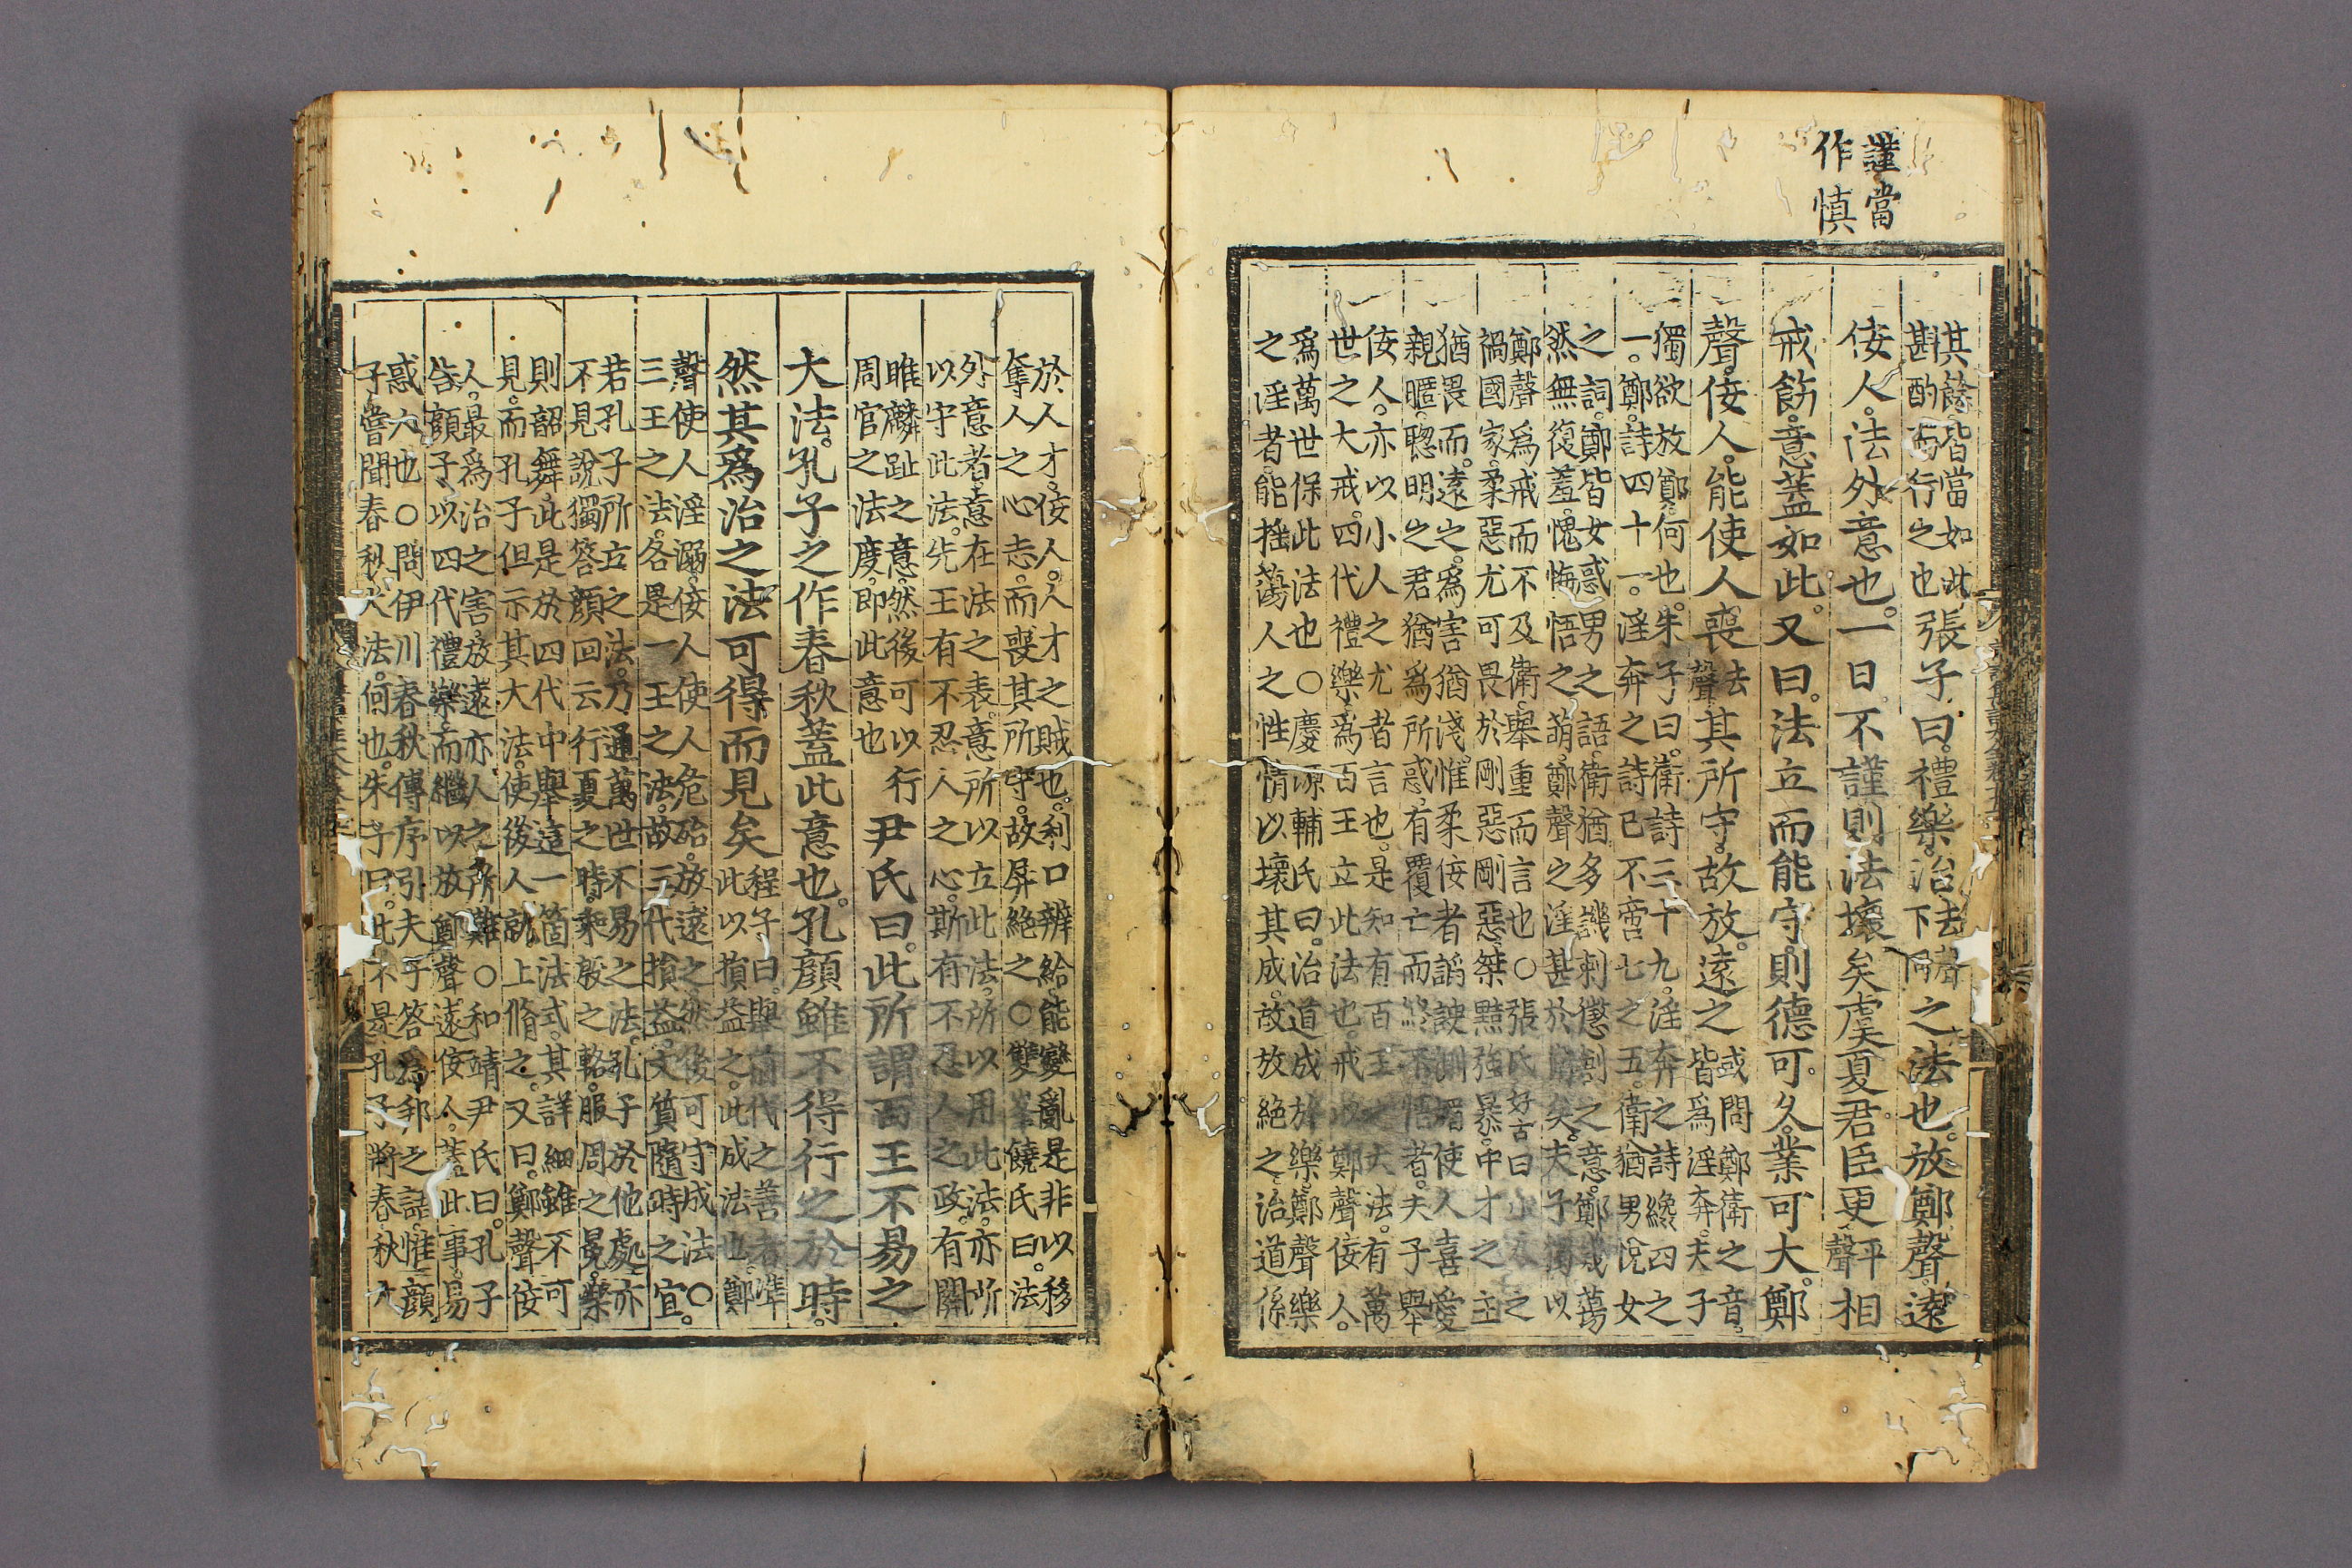 謹當
作慎
其餘皆當如此
斟酌而行之也
張子曰。禮樂。治去聲下同之法也。放鄭聲。遠
佞人。法外意也。一日不謹則法壞矣。虞夏君臣更平聲相
戒飭。意蓋如此。又曰。法立而能守。則德可久。業可大。鄭
聲。佞人。能使人喪去聲其所守。故放遠之
或問鄭衛之音。
皆爲淫奔。夫子
獨欲放鄭。何也。朱子曰。衛詩三十九。淫奔之詩纔四之
一。鄭詩四十一。淫奔之詩已不啻七之五。衛猶男悅女
之詞。鄭皆女惑男之語。衛猶多譏刺懲創之意。鄭幾蕩
然無復羞愧悔悟之萌。鄭聲之淫甚於衛矣。夫子獨以
鄭聲爲戒而不及衛。舉重而言也○張氏好古曰小人之
禍國家。柔惡尤可畏於剛惡。剛惡桀黠強暴。中才之主
猶畏而遠之。爲害猶淺。惟柔佞者謟諛媚使人喜愛
親暱。聰明之君猶爲所惑。有覆亡而終不悟者。夫子舉
佞人。亦以小人之尤者言也。是知有百王之大法。有萬
世之大戒。四代禮樂。爲百王立此法也。戒此鄭聲佞人。
爲萬世保此法也○慶源輔氏曰。治道成於樂。鄭聲樂
之淫者。能搖蕩人之性情。以壞其成。故放絕之。治道係
於人才。佞人。人才之賊也。利口辨給。能變亂是非。以移
奪人之心志。而喪其所守。故屏絕之○雙峯饒氏曰。法
外意者。意在法之表。意所以立此法。所以用此法。亦所
以守此法。先王有不忍人之心。斯有不忍人之政。有關
睢麟趾之意。然後可以行
周官之法度。即此意也
尹氏曰。此所謂百王不易之
大法。孔子之作春秋。蓋此意也。孔顏雖不得行之於時。
然其爲治之法可得而見矣
程子曰。舉前代之善者。準
此以損益之。此成法也。鄭
聲使人淫溺。佞人使人危殆。放遠之。然後可守成法○
三王之法。各是一王之法。故三代損益文質。隨時之宜。
若孔子所立之法。乃通萬世不易之法。孔子於他處亦
不見說。獨答顏回云。行夏之時。乘殷之輅。服周之冕。樂
則韶舞。此是於四代中舉這一箇法式。其詳細雖不可
見。而孔子但示其大法。使後人就上脩之。又曰。鄭聲佞
人。最爲治之害。放遠亦人之所難○和靖尹氏曰。孔子
告顏子以四代禮樂。而繼以放鄭聲遠佞人。蓋此事易
惑人也○問伊川春秋傳序。引夫子答爲邦之語。惟顏
子嘗聞春秋大法。何也。朱子曰。此不是孔子將春秋大